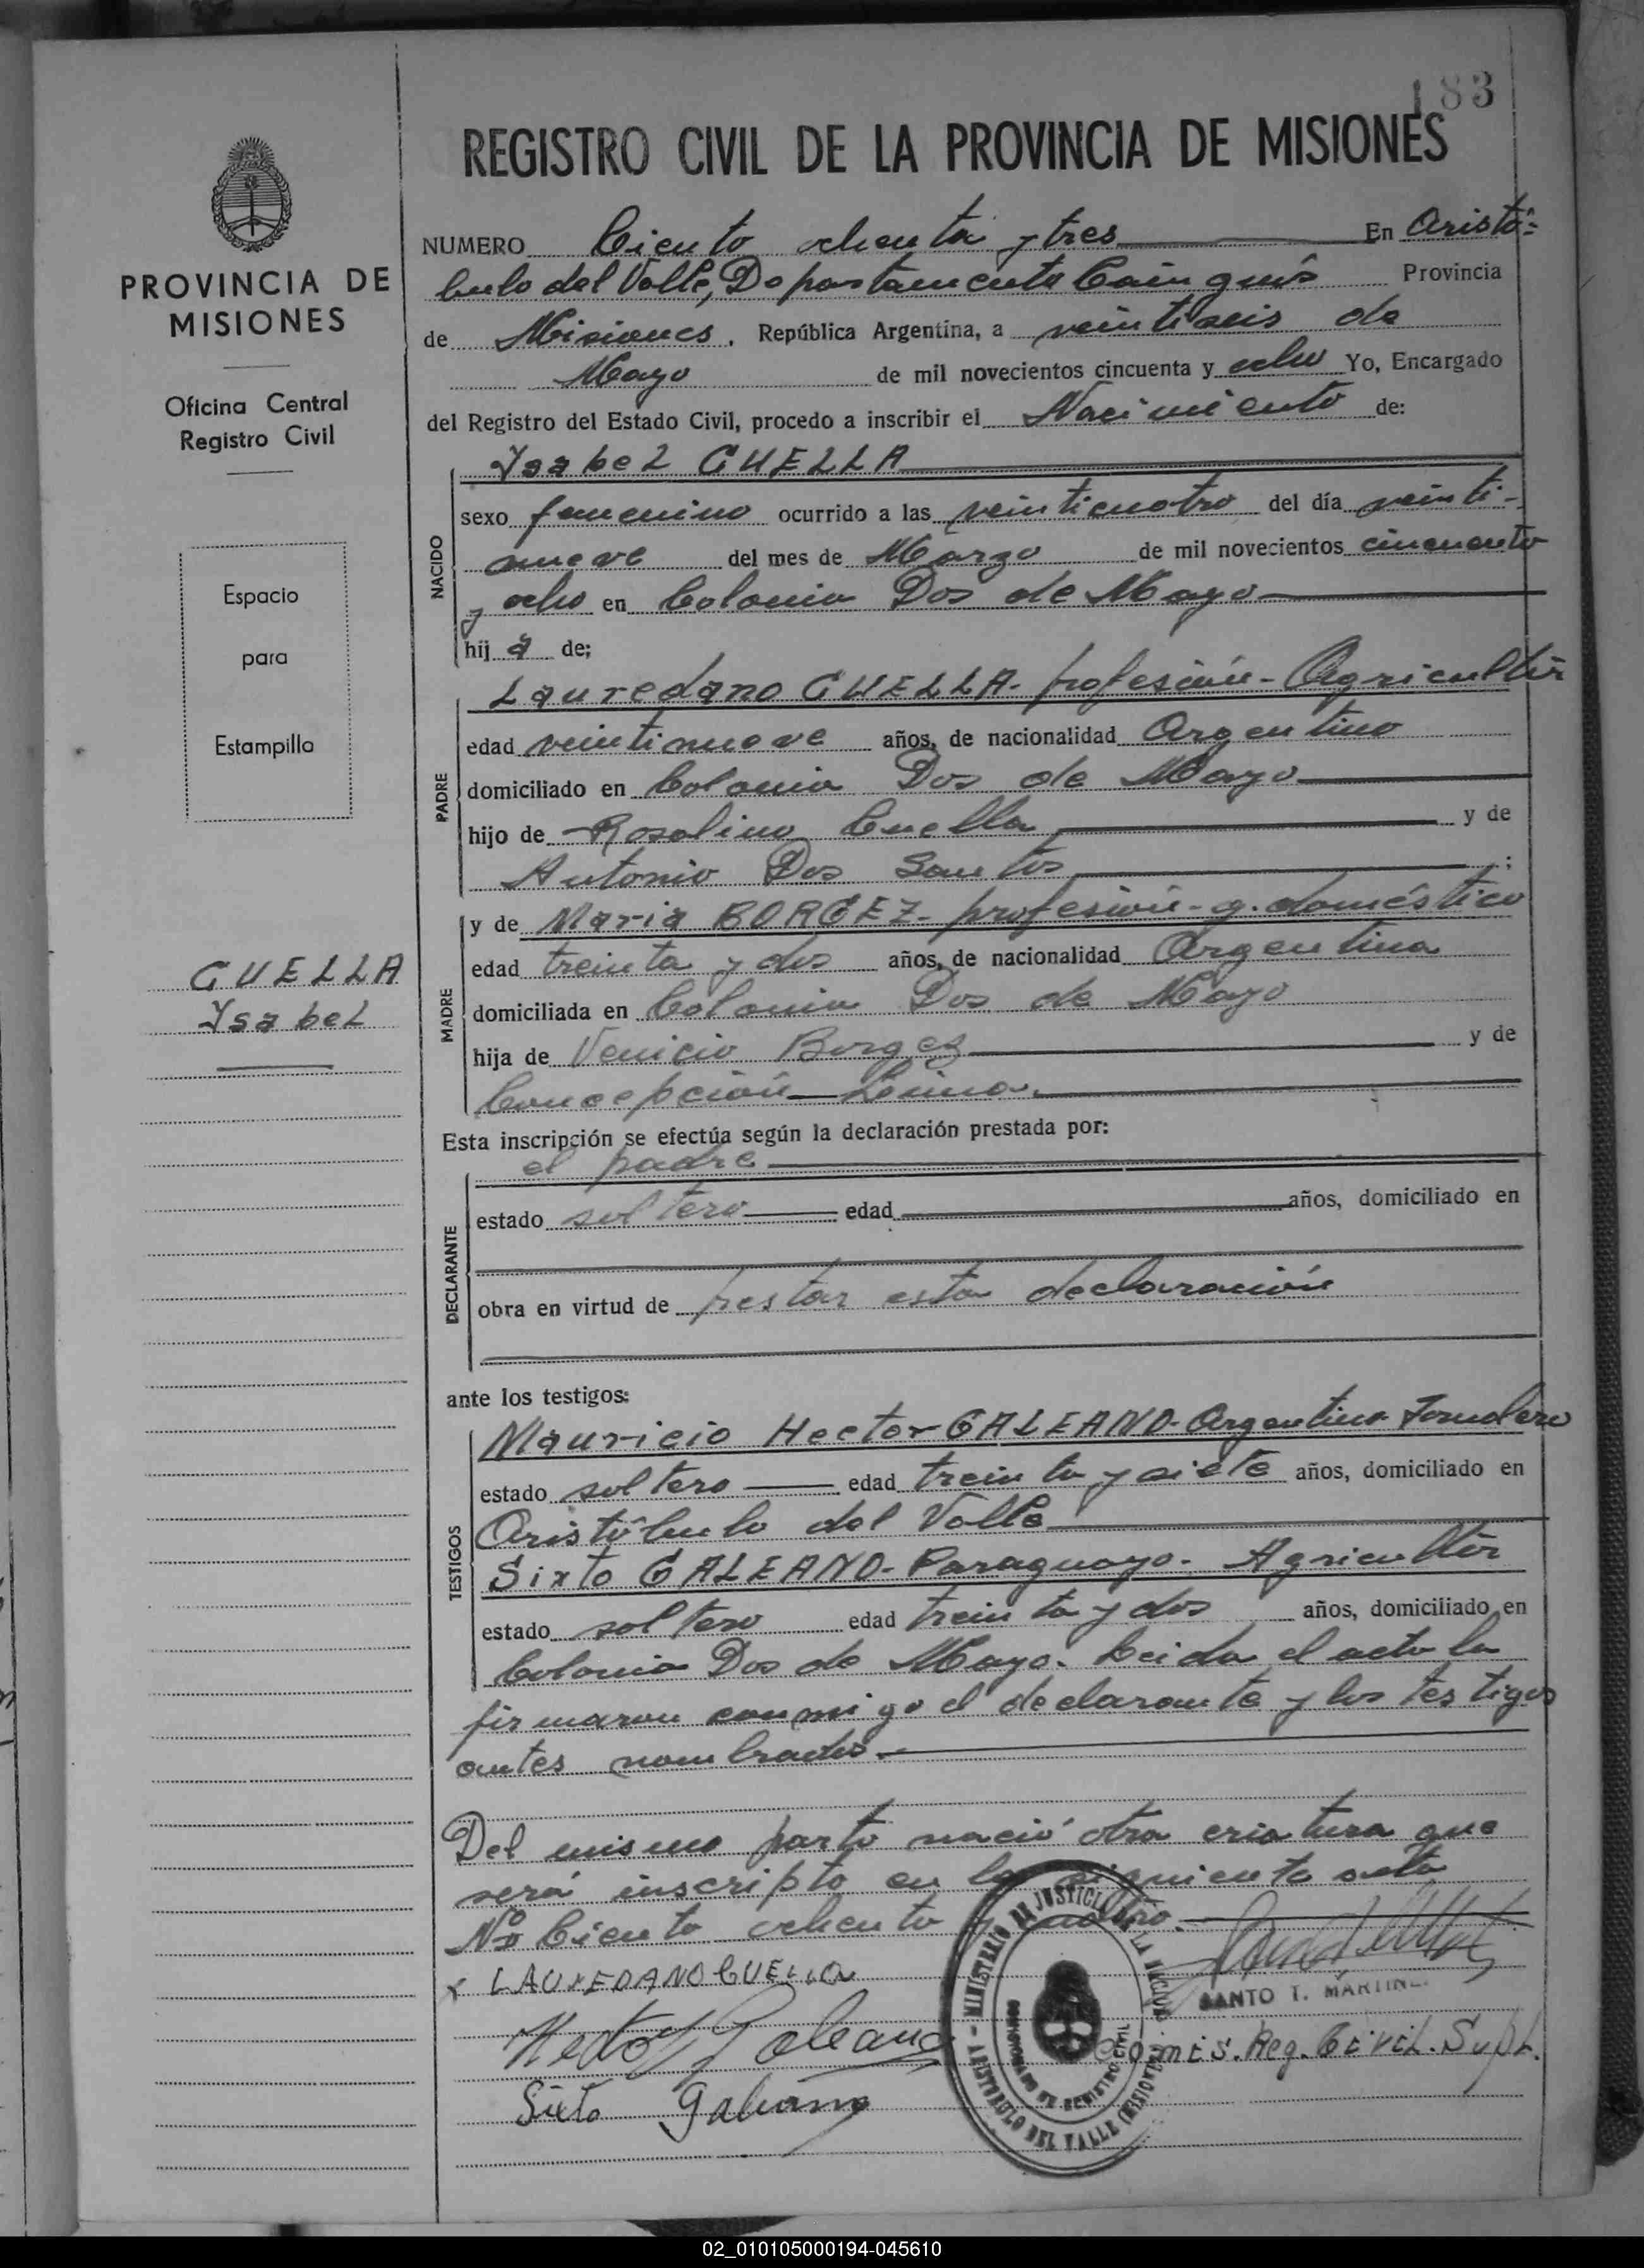 183
REGISTRO CIVIL DE LA PROVINCIA DE MISIONES
PROVINCIA DE
MISIONES
Oficina Central
Registro Civil
Espacio
para
Estampilla
CUELLA
Ysabel
NUMERO Ciento ochenta y tres En Aristó=
bulo del Valle, Departamento Cainguás Provincia
de Misiones, República Argentina, a veintiseis de
Mayo de mil novecientos cincuenta y ocho Yo, Encargado
del Registro del Estado Civil, procedo a inscribir el Nacimiento de:
Ysabel CUELLA
NACIDO
sexo femenino ocurrido a las veinticuatro del día veinti-
nueve del mes de Marzo de mil novecientos cincuenta
y ocho en Colonia Dos de Mayo
hij a de;
Lauredano CUELLA - profesión - Agricultor
PADRE
edad veintinueve años, de nacionalidad Argentino
domiciliado en Colonia Dos de Mayo
hijo de Rosalino Cuella y de
Antonia Dos Santos ;
y de Maria BORGEZ - profesión - q. doméstico
MADRE
edad treinta y dos años, de nacionalidad Argentina
domiciliada en Colonia Dos de Mayo
hija de Venicio Borgez y de
Concepción
Esta inscripción se efectúa según la declaración prestada por:
el padre
DECLARANTE
estado soltero edad años, domiciliado en
obra en virtud de prestar esta declaración
ante los testigos:
Mauricio Hector GALEANO - Argentino - Jornalero
TESTIGOS
estado soltero edad treinta y siete años, domiciliado en
Aristóbulo del Valle
Sixto GALEANO - Paraguayo - Agricultor
estado soltero edad treinta y dos años, domiciliado en
Colonia Dos de Mayo. Leida el acta la
firmaron conmigo el declarante y los testigos
antes nombrados.
Del mismo parto nació otra criatura que
será inscripto en la siguiente acta
Nº Ciento ochenta y cuatro.
x LAUREDANO CUELLA
Hector Galeano
Sixto Galeano
SANTO T. MARTINEZ
Comis. Reg. Civil. Supl.
MINISTERIO DE JUSTICIA DE LA NACION
ARISTOBULO DEL VALLE (MISIONES)
02_010105000194-045610